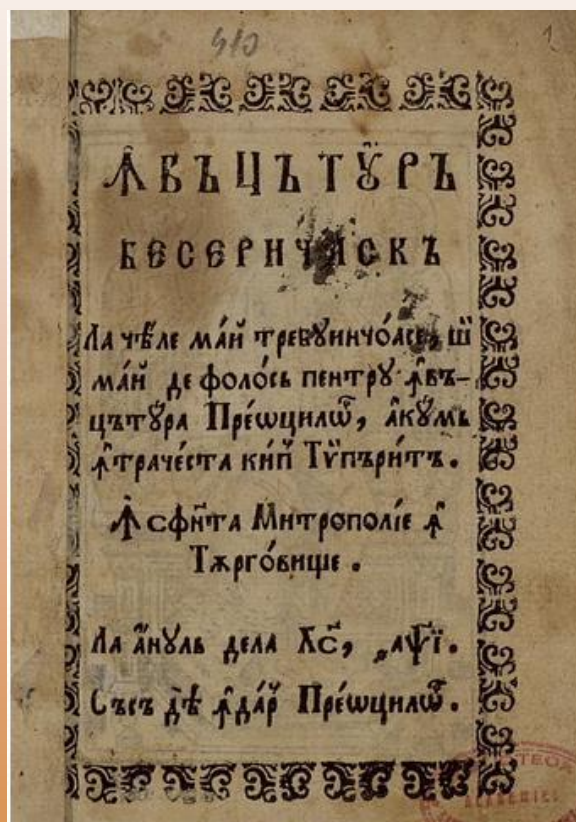 410
1
Ꙟвъцътꙋ́ръ
бесеричѧскъ
Ла чѣ́ле ма́й требꙋинчо́асе, шѝ
ма́й де фоло́сь пентрꙋ ꙟвъ-
цътꙋ́ра Прео́ѡцилѡⷬ, аꙋкꙋмь
ꙟтрачѐста кипⷭ Тѵпъри́тъ.
Ꙟсфн҃та Митропо́лїе ꙟ
Тѫрго́вище.
Ла а́нꙋль дела Хс҃, ҂аѱ҃ї.
Съсъ дѣ ꙟда́рⷹ Пре́ѡцилѡⷬ.